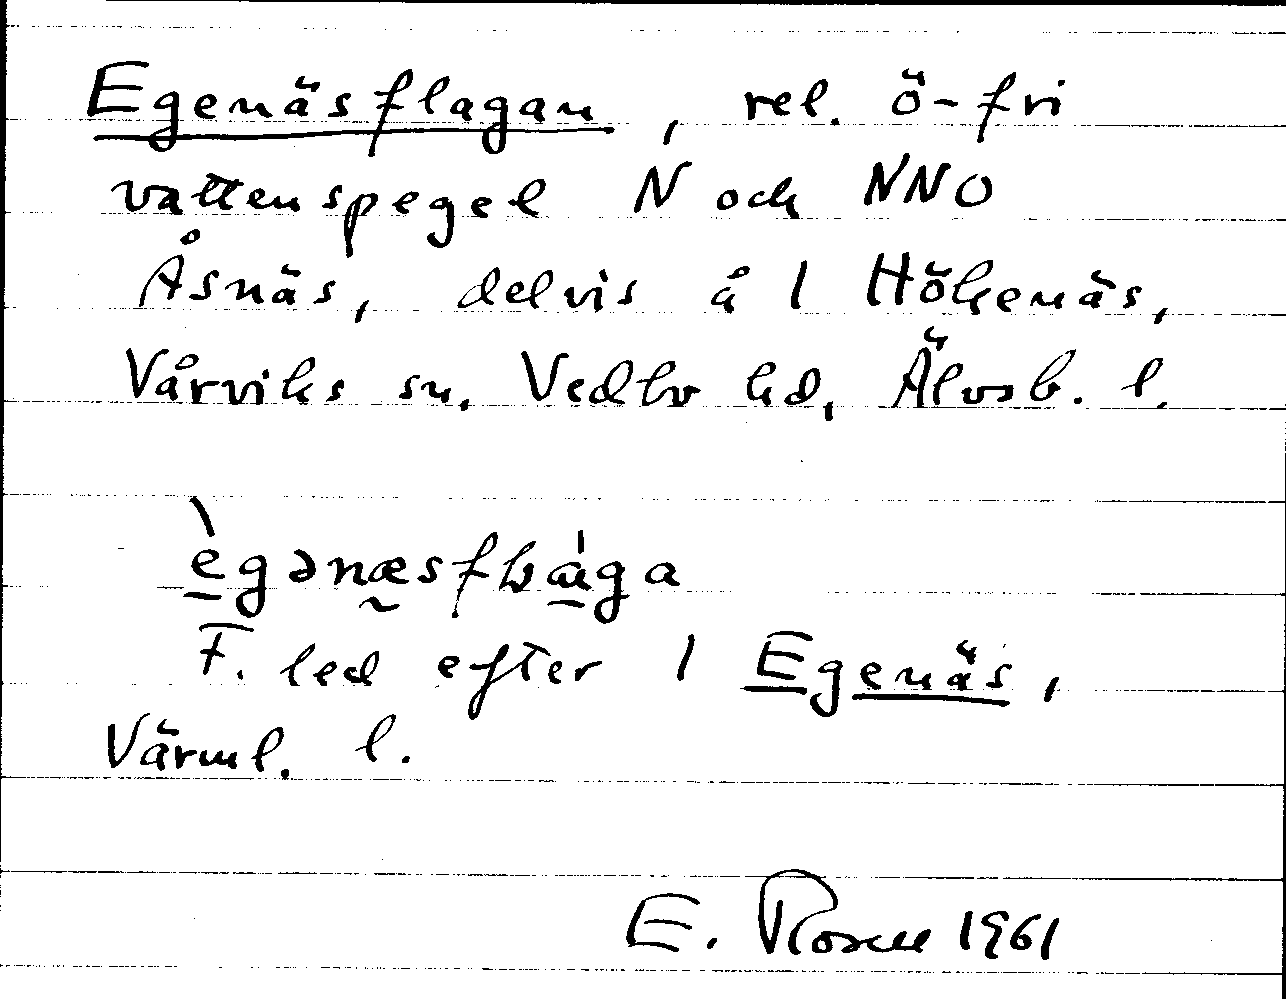 Egenäsflagan, rel. ö-fri
vattenspegel N och NNO
Åsnäs, delvis å 1 Hökenäs,
Vårviks sn. Vedbo hd, Älvsb. l.
ègənæsfɫa̍ga
F. led efter 1 Egenäs,
Värml. l.
E. Rosell 1961